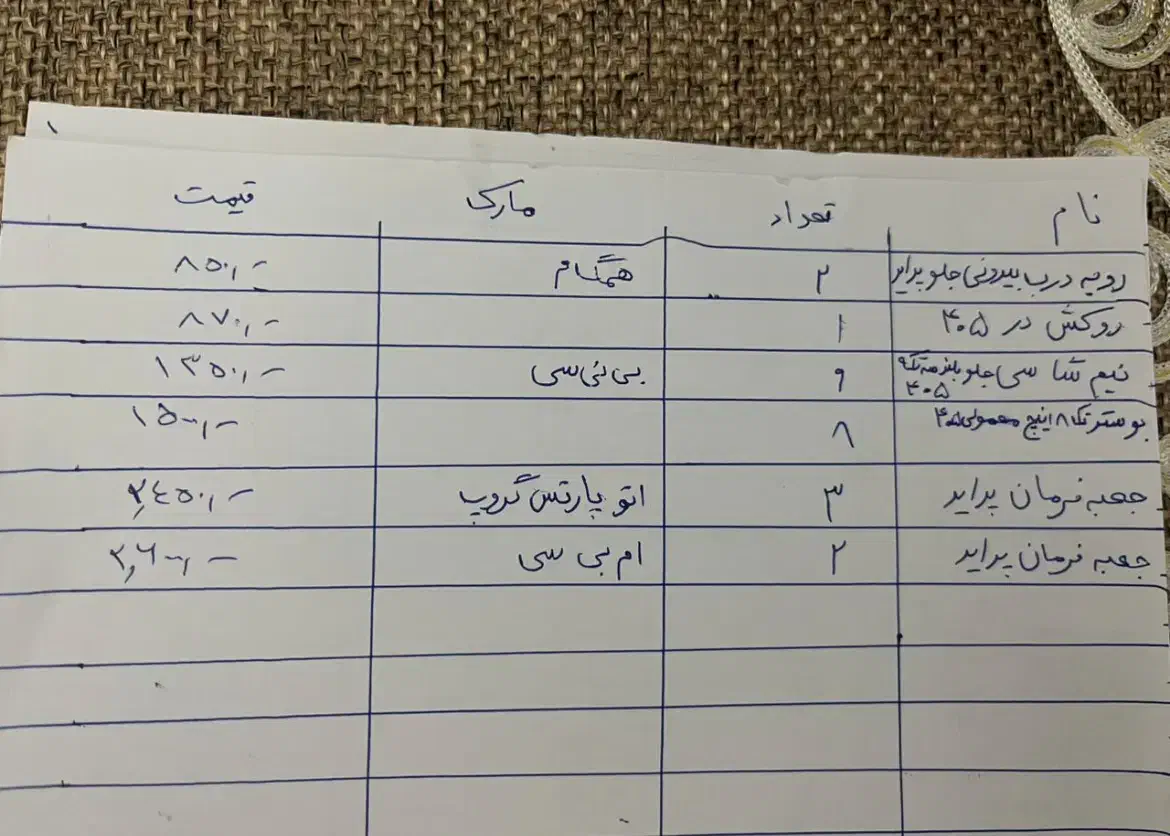 ۱
نام تعداد مارک قیمت
رویه درب بیرونی جلو پراید ۲ همگام ۸۵۰,-
روکش در ۴۰۵ ۱ ۸۷۰,-
نیم شاسی جلو ۹ بی ئی سی ۱۳۵۰,-
۴۰۵
بوستر تک ۸ اینچ معمولی ۴۰۵ ۸ ۱۵۰۰,-
جعبه فرمان پراید ۳ اتو پارتس گروپ ۲,۴۵۰,-
جعبه فرمان پراید ۲ ام بی سی ۲,۶۰۰,-